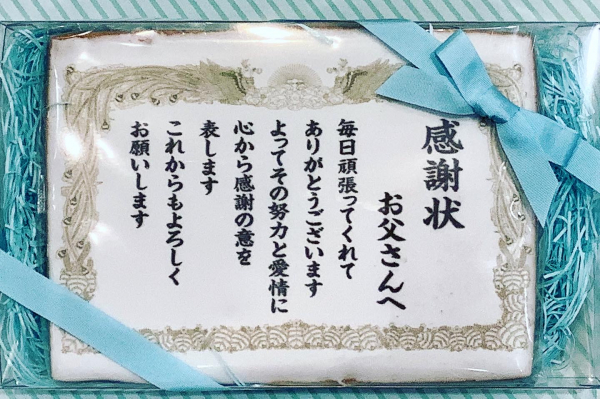 感謝状
お父さんへ
毎日頑張ってくれて
ありがとうございます
よってその努力と愛情に
心から感謝の意を
表します
これからもよろしく
お願いします